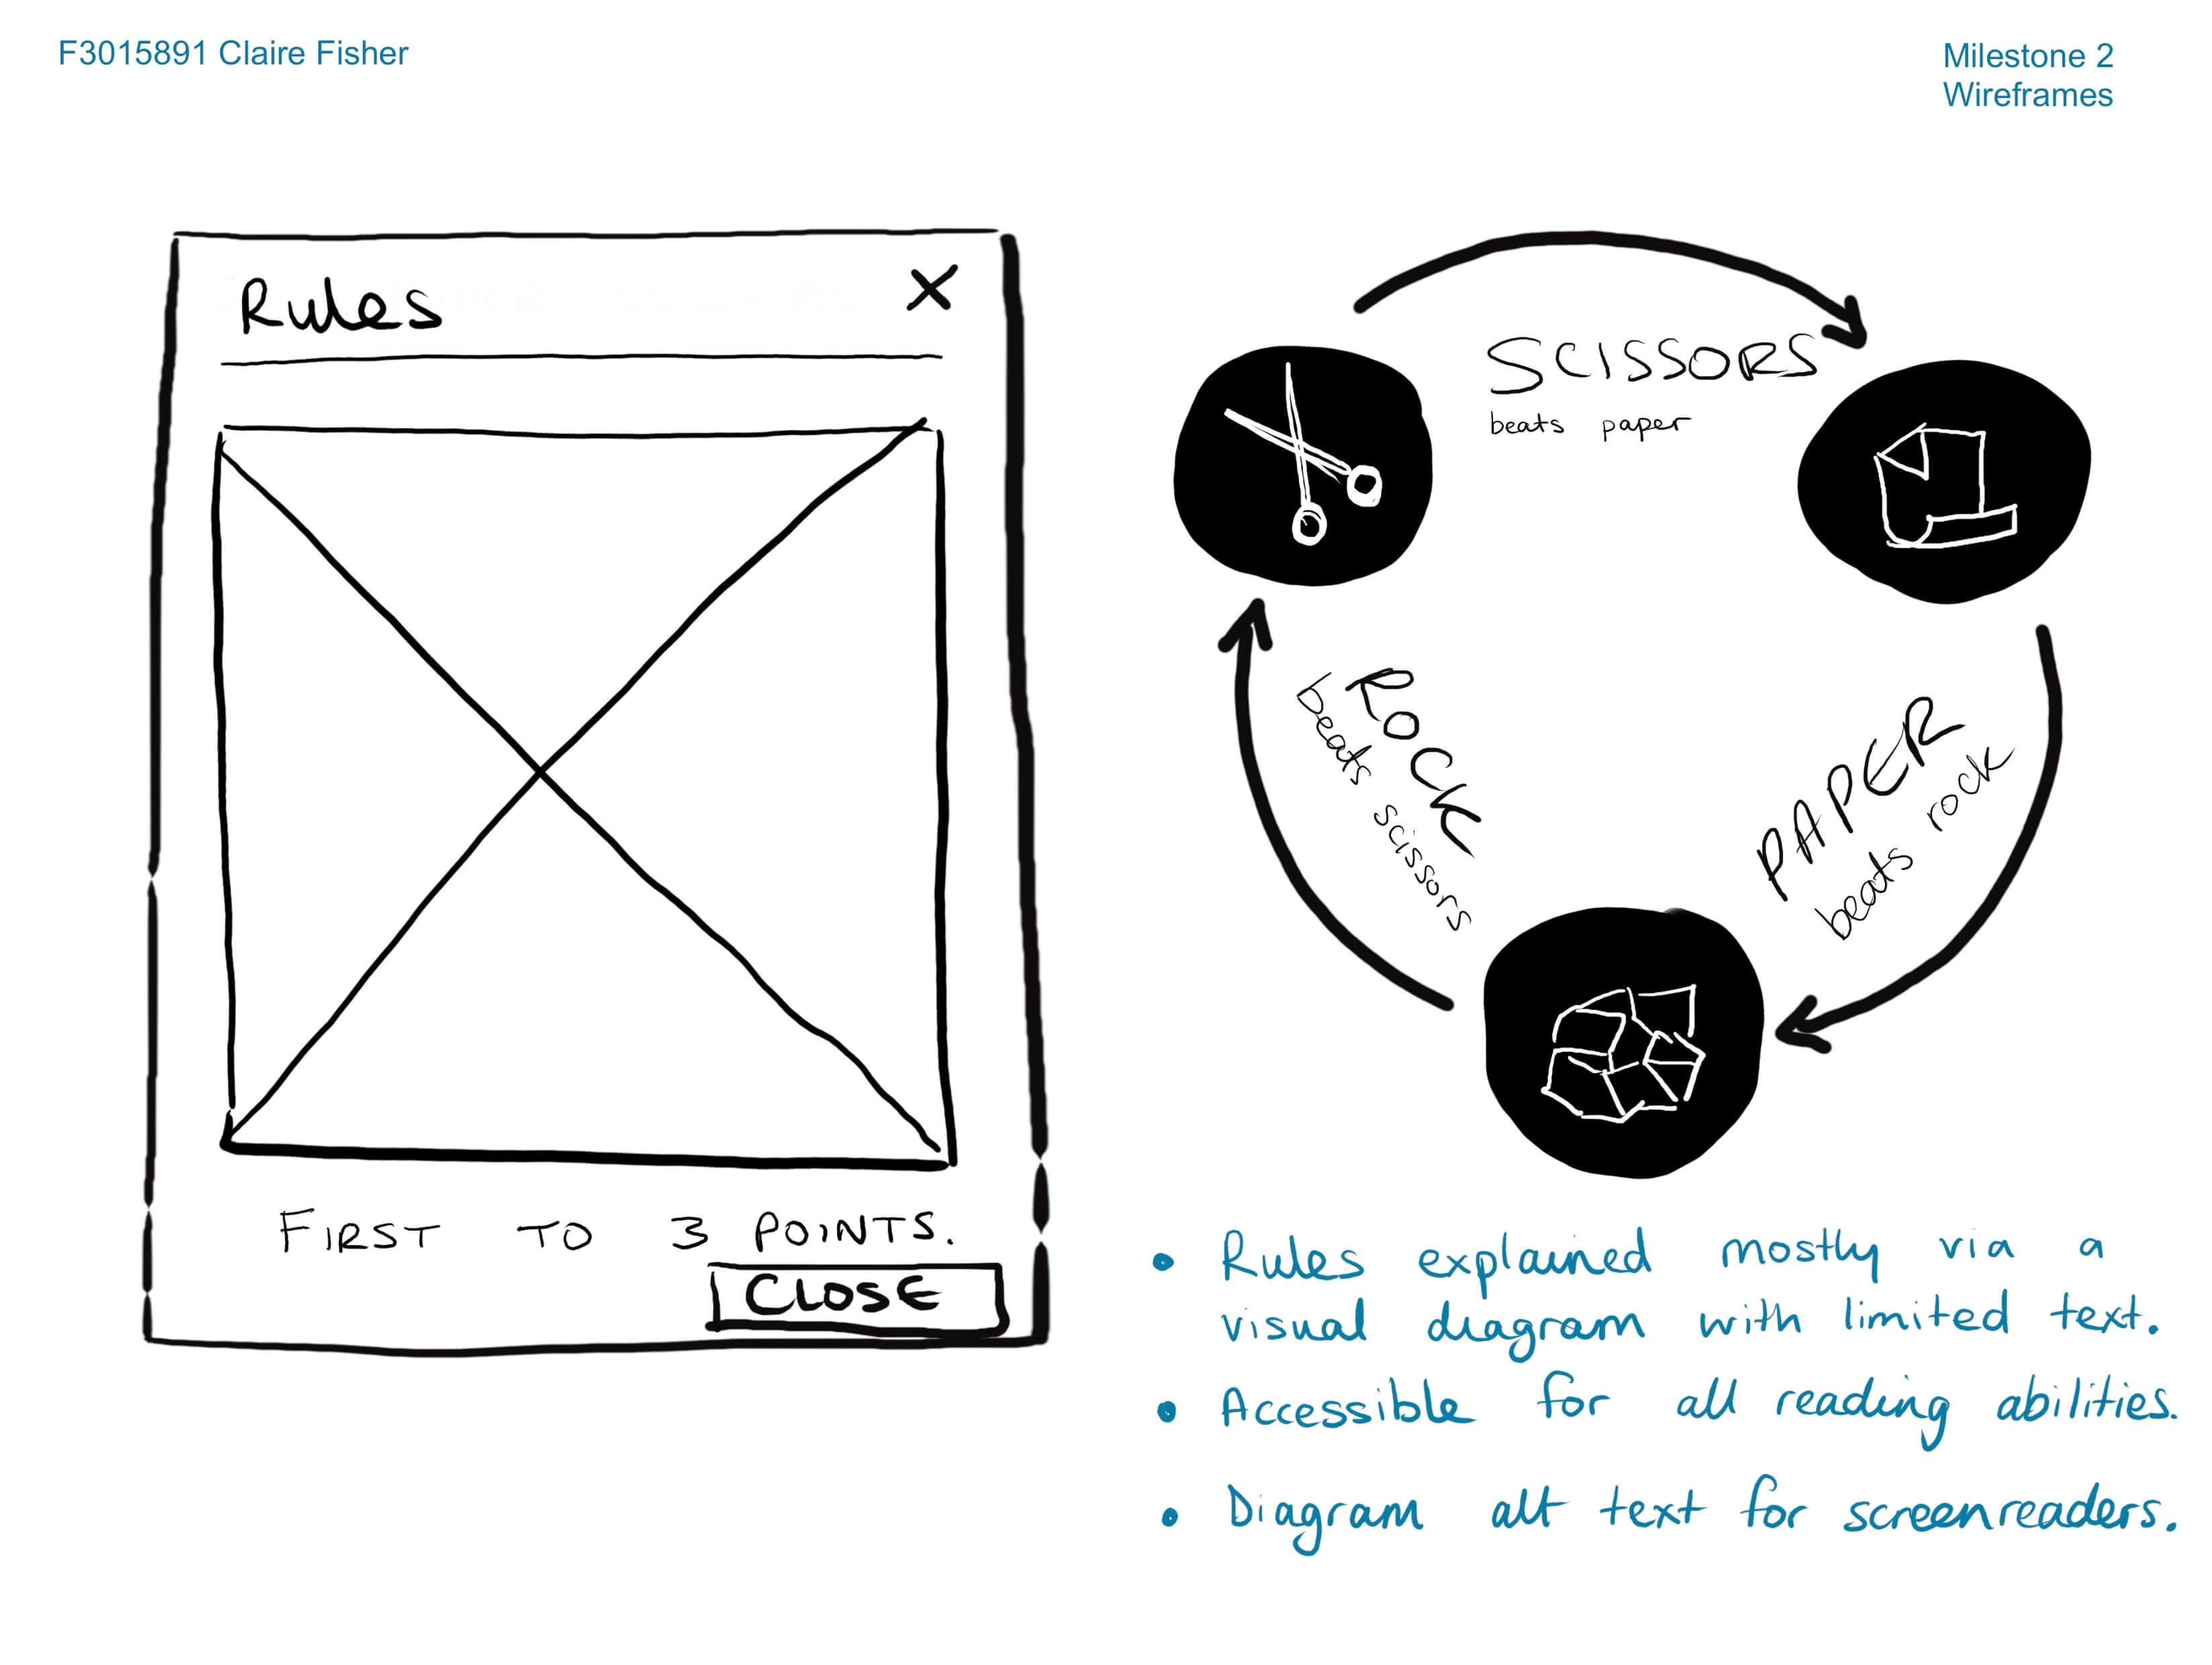 F3015891 Claire Fisher
Milestone 2
Wireframes
Rules
X
FIRST TO 3 POINTS.
CLOSE
SCISSORS
beats paper
ROCK
beats scissors
PAPER
beats rock
• Rules explained mostly via a
visual diagram with limited text.
• Accessible for all reading abilities.
• Diagram alt text for screenreaders.